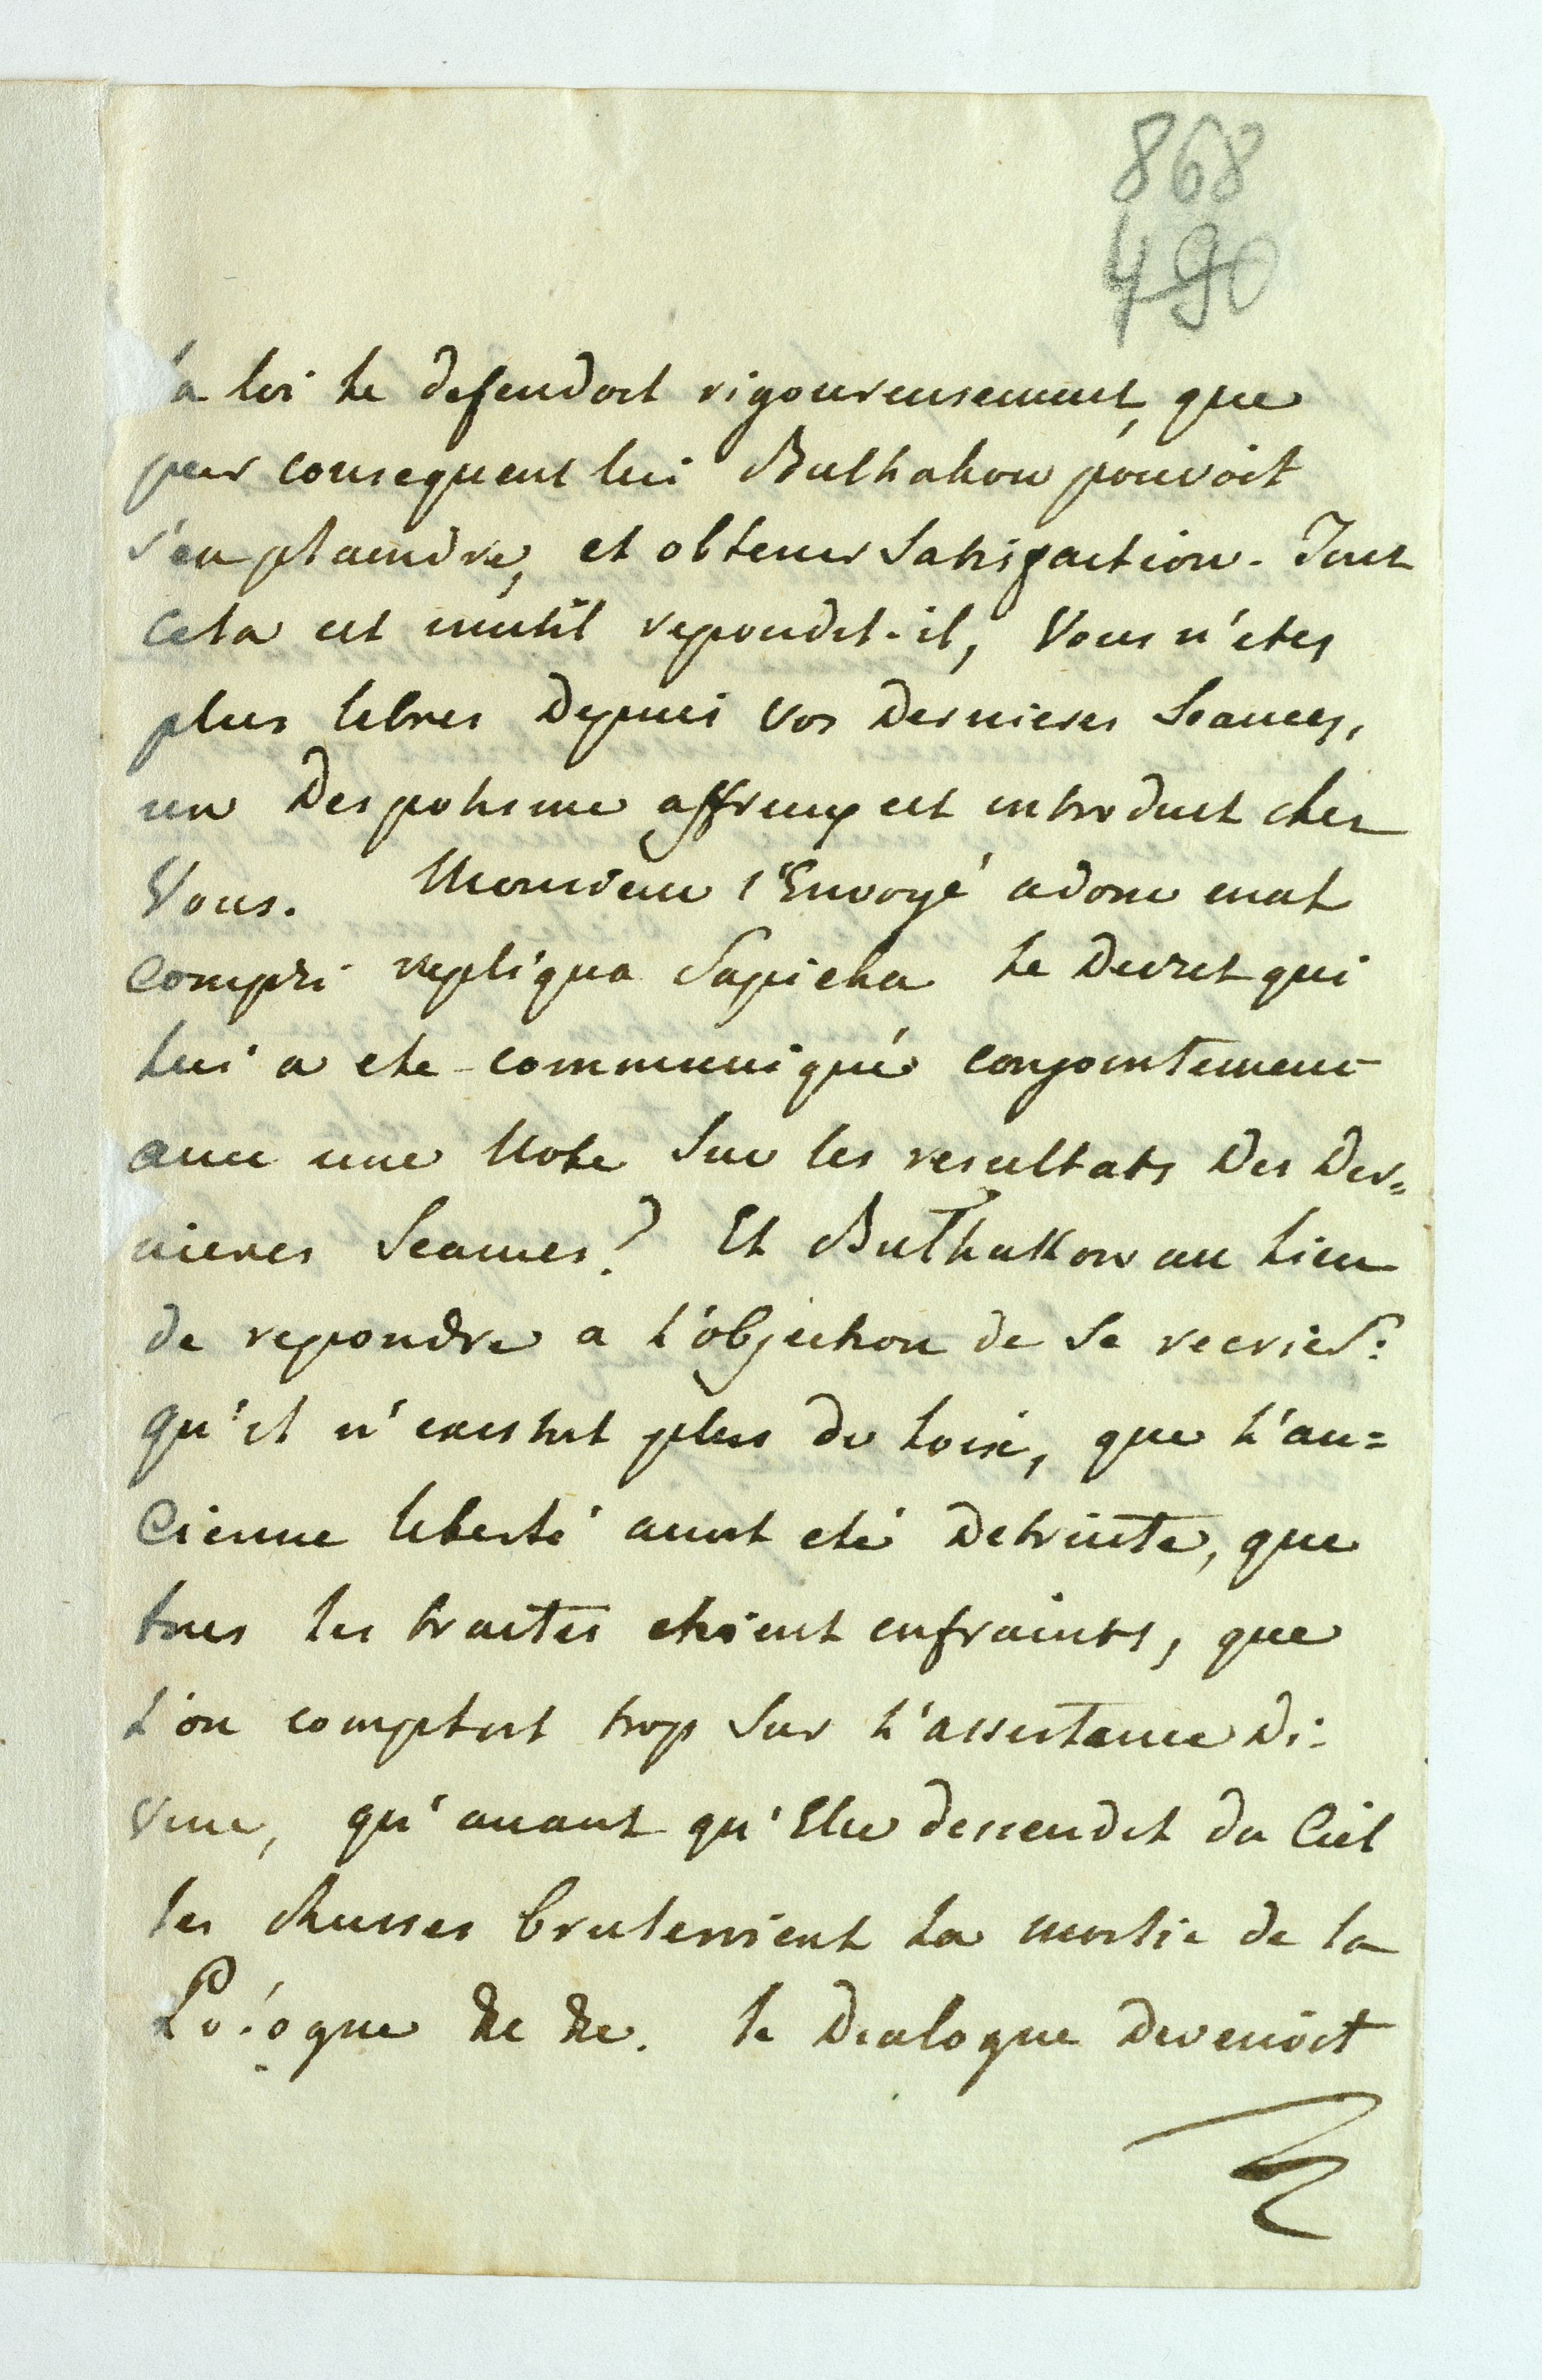 868
490
la loi le defendoit rigoureusement, que
par consequent lui Bulhakow pouvoit
s'en plaindre, et obtenir Satisfaction. Tout
cela est inutil repondit-il, Vous n'etes
plus libres depuis vos dernieres Seances,
un Despotisme affreux est introduit chez
Vous. Monsieur l'Envoyé a donc mal
compri repliqua Sapieha le Decret qui
lui a ete communiqué conjointement
avec une Note Sur les resultats des der=
nieres Seances? Et Bulhakow au lieu
de repondre a l'objection de Se recrier:
qu'il n'existoit plus de loix, que l'an=
cienne liberté avoit eté detruite, que
tous les traites etoient enfraints, que
l'on comptoit trop Sur l'assistance di=
vine, qu'avant qu'Elle descendit du Ciel
les Russes bruleroient la moitie de la
Pologne &c &c. le Dialogue devenoit